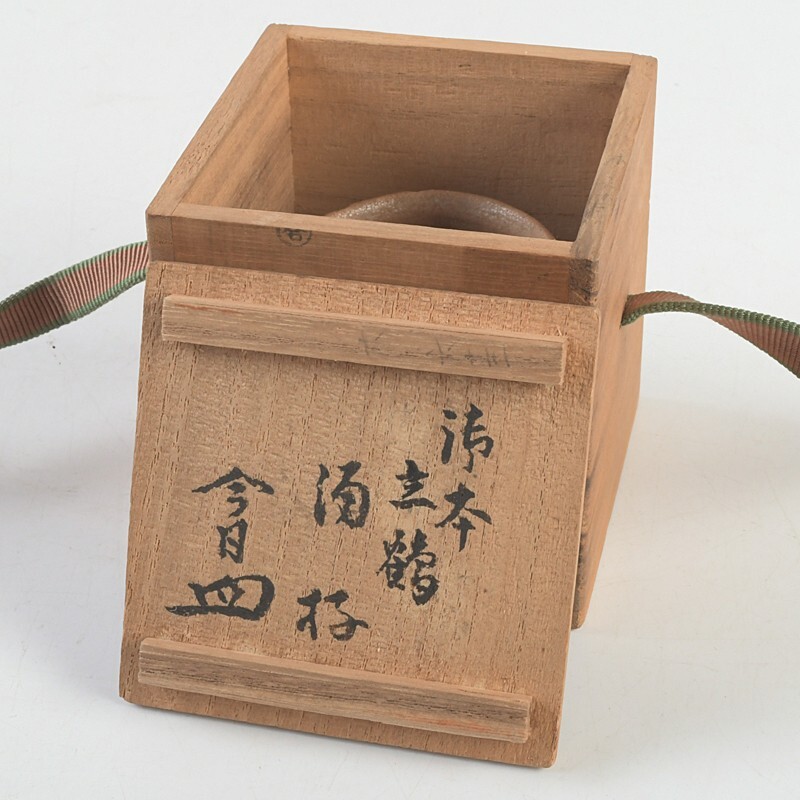 御本
立鶴
酒杯
今日